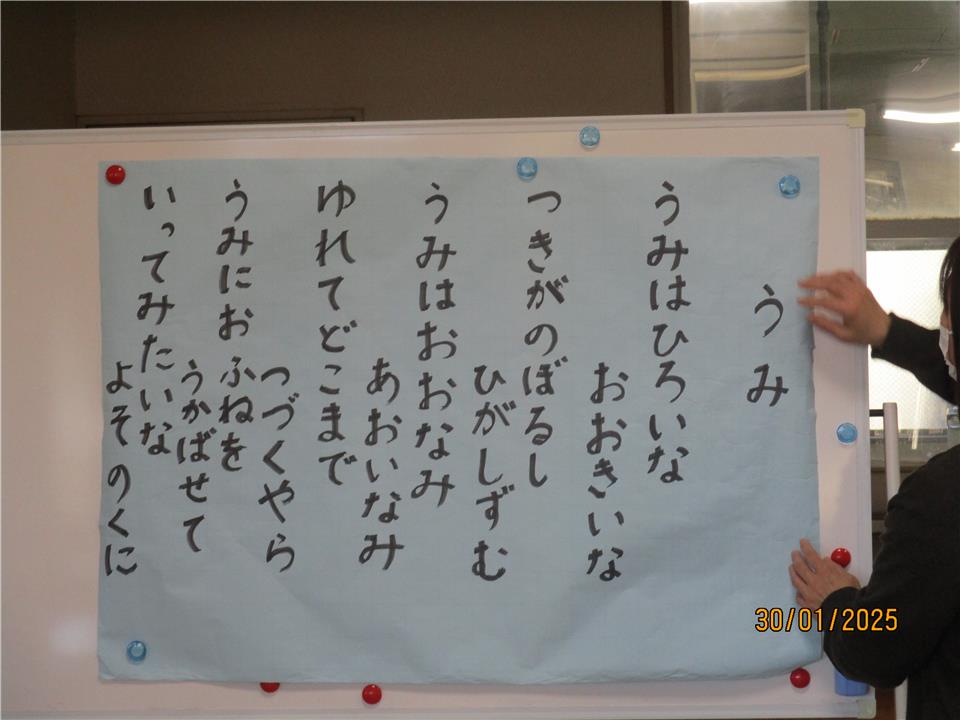 うみ
うみはひろいな
おおきいな
つきがのぼるし
ひがしずむ
うみはおおなみ
あおいなみ
ゆれてどこまで
つづくやら
うみにおふねを
うかばせて
いってみたいな
よそのくに
30/01/2025